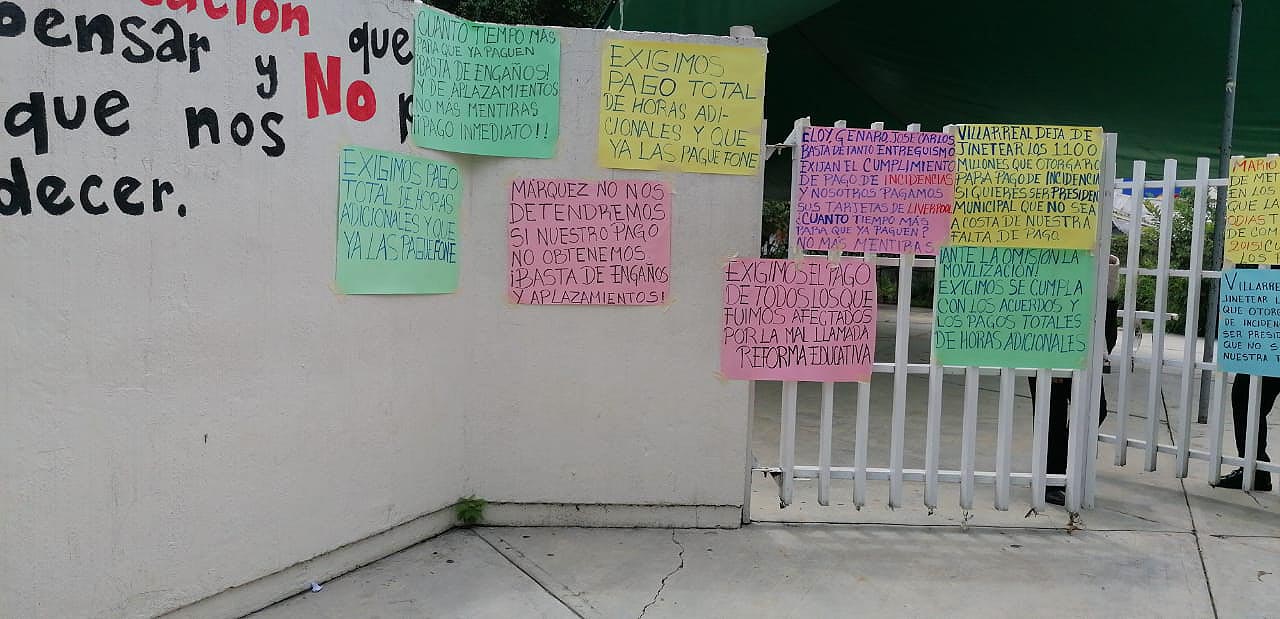 pensar que
y No
que nos
decer.
CUANTO TIEMPO MÁS
PARA QUE YA PAGUEN
¡BASTA DE ENGAÑOS!
Y DE APLAZAMIENTOS
NO MÁS MENTIRAS
¡PAGO INMEDIATO!!
EXIGIMOS
PAGO TOTAL
DE HORAS ADI-
CIONALES Y QUE
YA LAS PAGUE FONE
EXIGIMOS PAGO
TOTAL DE HORAS
ADICIONALES Y QUE
YA LAS PAGUE FONE
MÁRQUEZ NO NOS
DETENDREMOS
SI NUESTRO PAGO
NO OBTENEMOS.
¡BASTA DE ENGAÑOS
Y APLAZAMIENTOS!
ELOY GENARO, JOSE CARLOS
BASTA DE TANTO ENTREGUISMO
EXIJAN EL CUMPLIMIENTO
DE PAGO DE INCIDENCIAS
Y NOSOTROS PAGAMOS
SUS TARJETAS DE LIVERPOOL
¿CUÁNTO TIEMPO MÁS
PARA QUE YA PAGUEN?
NO MÁS MENTIRAS
VILLARREAL DEJA DE
JINETEAR LOS 1100
MILLONES QUE OTORGARO
PARA PAGO DE INCIDENCIA
SI QUIERES SER PRESIDEN
MUNICIPAL QUE NO SEA
A COSTA DE NUESTRA
FALTA DE PAGO.
EXIGIMOS EL PAGO
DE TODOS LOS QUE
FUIMOS AFECTADOS
POR LA MAL LLAMADA
REFORMA EDUCATIVA
¡ANTE LA OMISIÓN LA
MOVILIZACIÓN!
EXIGIMOS SE CUMPLA
CON LOS ACUERDOS Y
LOS PAGOS TOTALES
DE HORAS ADICIONALES
MARIO
DE MET
EN LOS
QUE LA
DE COM
VILLARRE
JINETEAR L
QUE OTORG
DE INCIDEN
SER PRESID
QUE NO S
NUESTRA